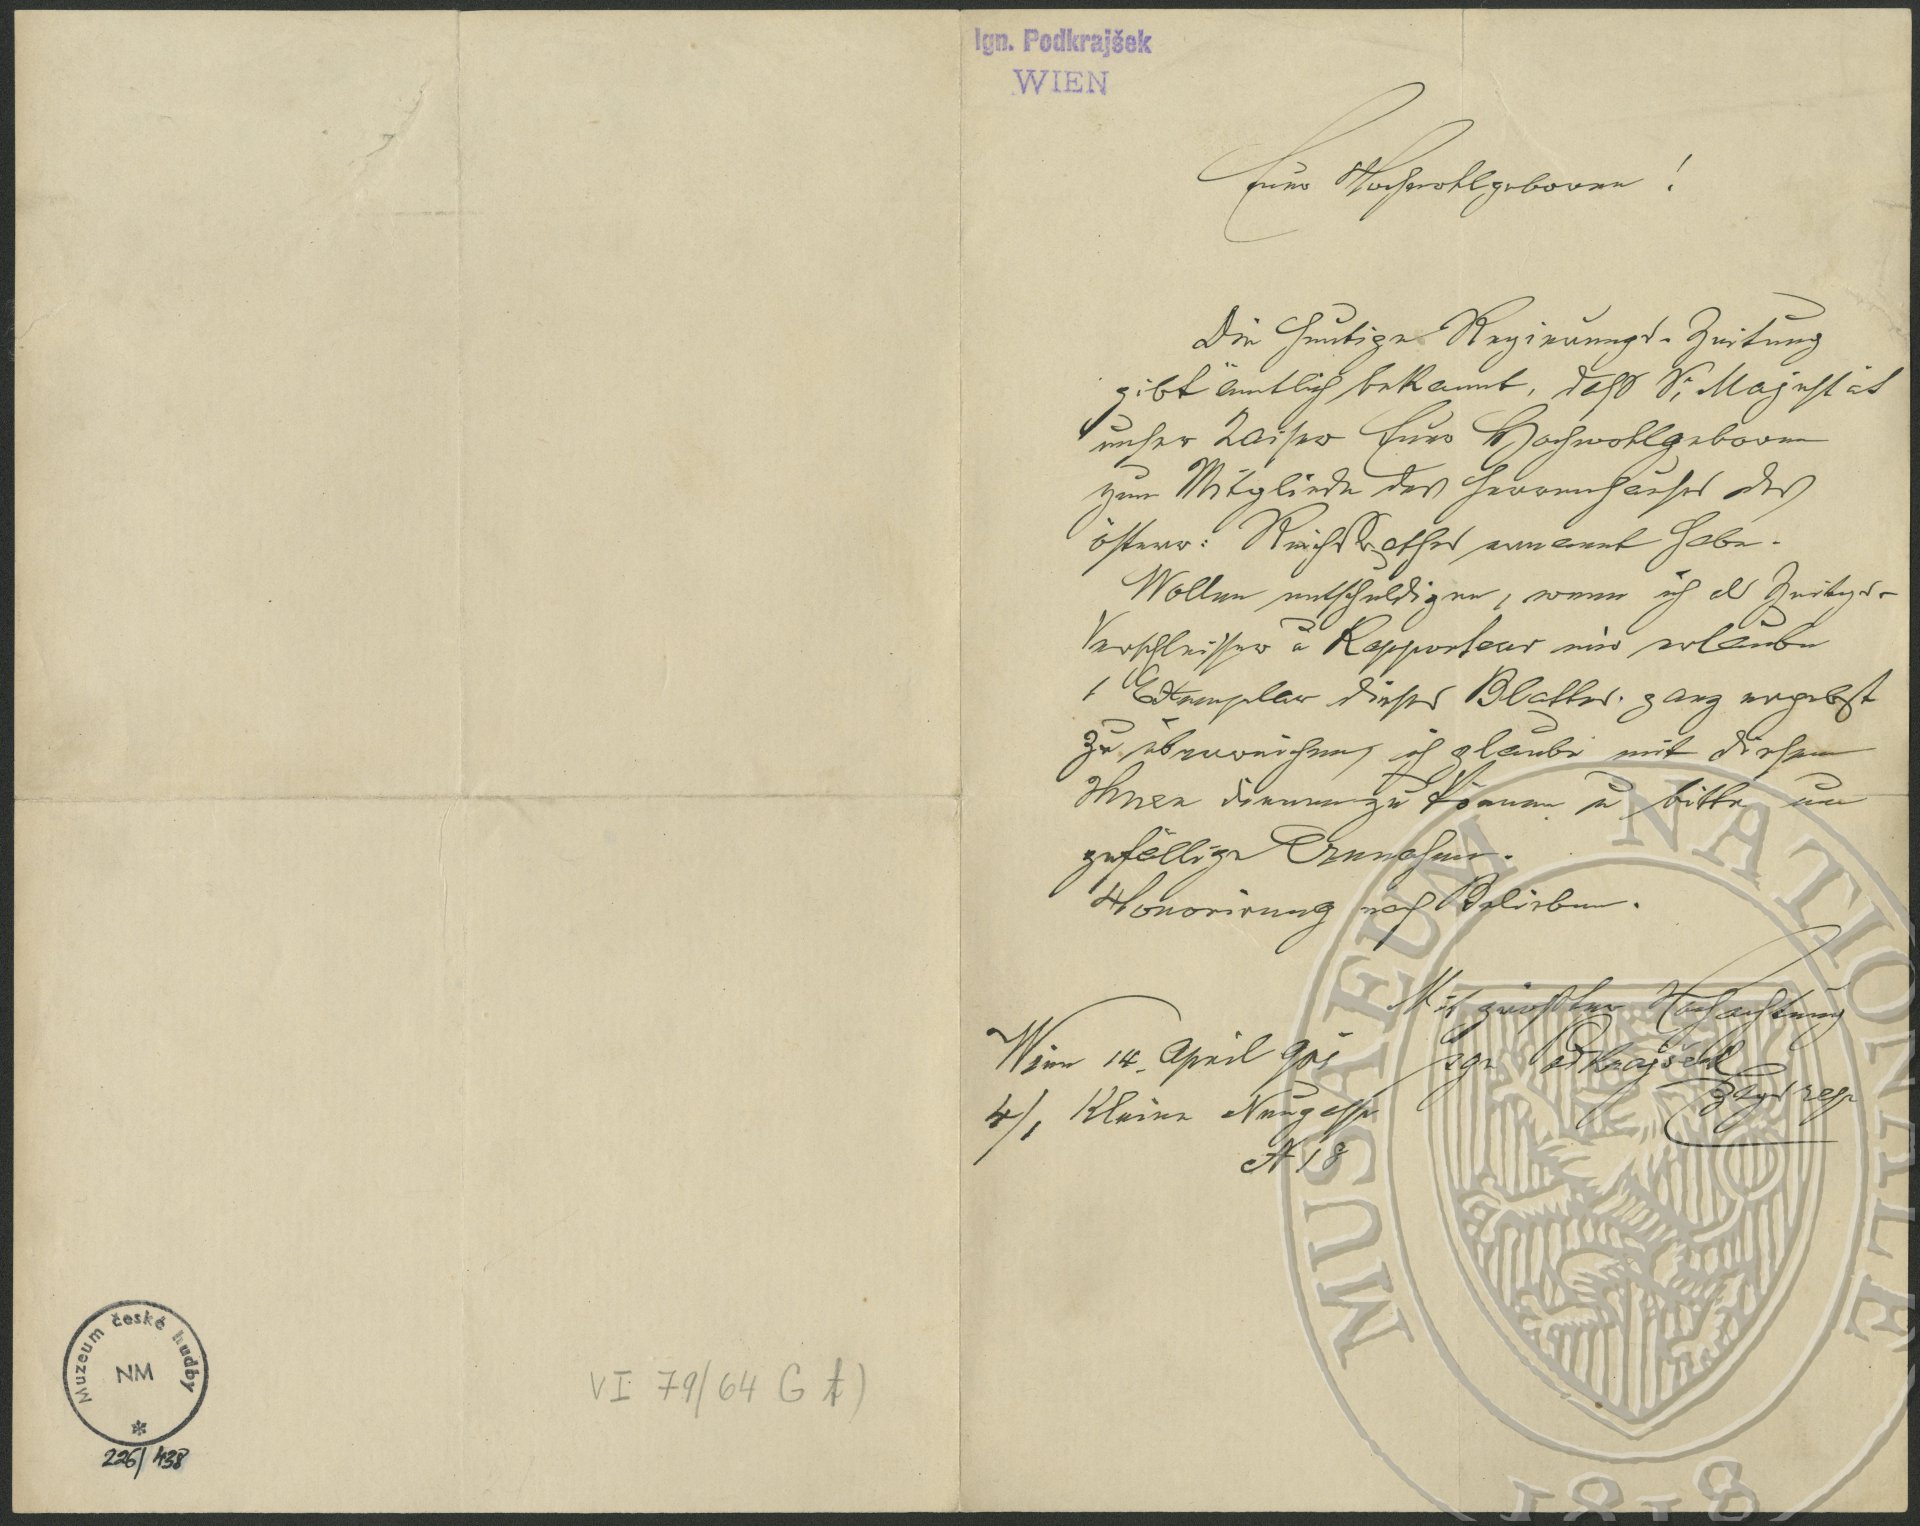 Ign. Podkrajšek
WIEN
Euer Hochwohlgeboren!
Die heutige Regierungs-Zeitung
gibt ämtlich bekannt, daß Sr Majestät
unser Kaiser Euer Hochwohlgeboren
zum Mitgliede des Herrenhauses des
österr: Reichsrathes ernannt habe.
Wollen entschuldigen, wenn ich als Zeitgs-
Verschleisser u Rapporteur mir erlaube
1 Exemplar dieses Blattes ganz ergebst
zu überreichen, ich glaube mit diesem
Ihnen dienen zu können u bitte um
gefällige Annahme.
Honorirung nach Belieben.
Mit größter Hochachtung
Wien 14. April 901
Ign Podkrajšek
4/1 Kleine Neugasse
N 18
Muzeum české hudby
NM
226/438
VI 79/64 G
MUSAEUM NATIONALE
1818